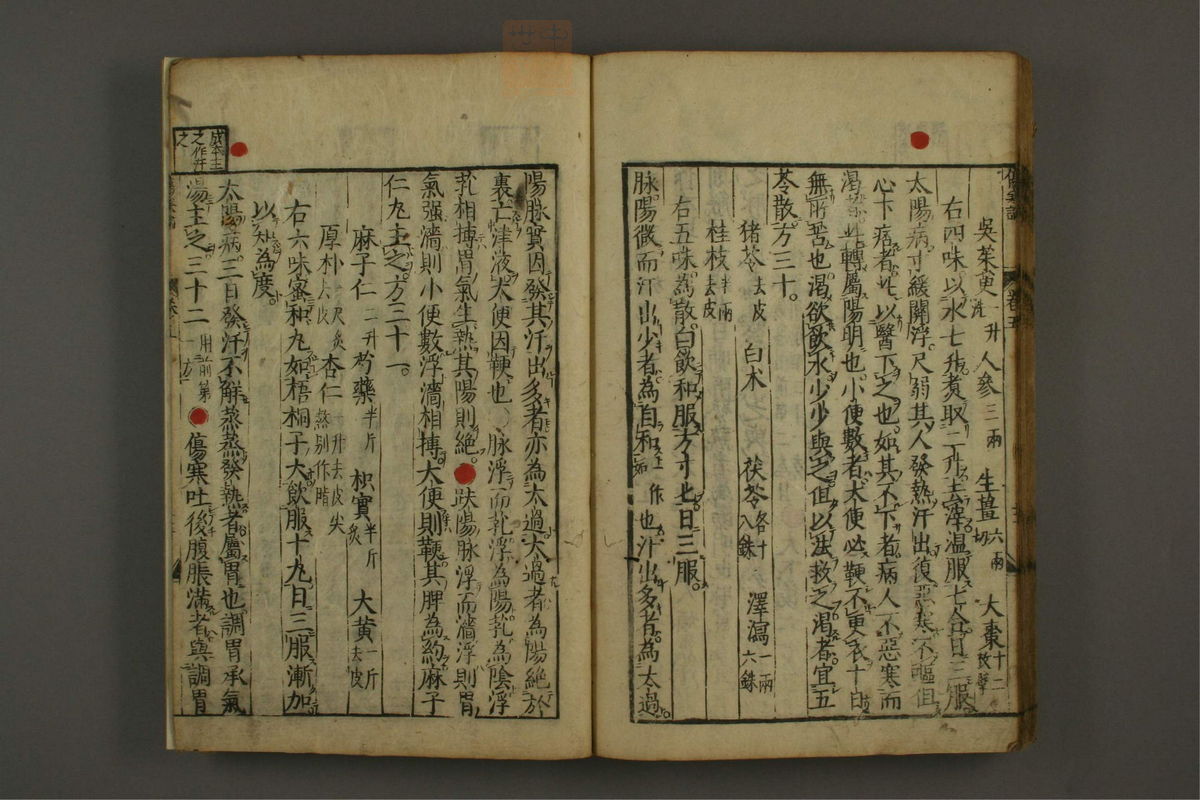 吳茱萸一升洗 人參三兩 生薑六兩切 大棗十二枚擘
右四味以水七升煮取二升去滓温服七合日三服
太陽病寸緩關浮尺弱其人發熱汗出復惡寒不嘔但
心下痞者此以醫下之也如其不下者病人不惡寒而
渴者此轉屬陽明也小便數者大便必鞕不更衣十日
無所苦也渴欲飲水少少與之但以法救之渴者宜五
苓散方三十。
猪苓去皮 白朮 茯苓各十八銖 澤瀉一兩六銖
桂枝半兩去皮
右五味為散白飲和服方寸匕日三服。
脉陽微而汗出少者為自和一作如也汗出多者為太過
陽脉實因發其汗出多者亦為太過太過者為陽絕於
裏亡津液大便因鞕也〇脉浮而芤浮為陽芤為陰浮
芤相搏胃氣生熱其陽則絕。趺陽脉浮而濇浮則胃
氣强濇則小便數浮濇相搏大便則鞕其脾為約麻子
仁丸主之方三十一。
麻子仁二升 芍藥半斤 枳實半斤炙 大黄一斤去皮
厚朴一尺炙去皮 杏仁一升去皮尖熬別作脂
右六味蜜和丸如梧桐子大飲服十丸日三服漸加
以知為度。
太陽病三日發汗不解蒸蒸發熱者屬胃也調胃承氣
湯主之三十二用前第一方 傷寒吐後腹脹滿者與調胃
成本主
之作并
之
卷五